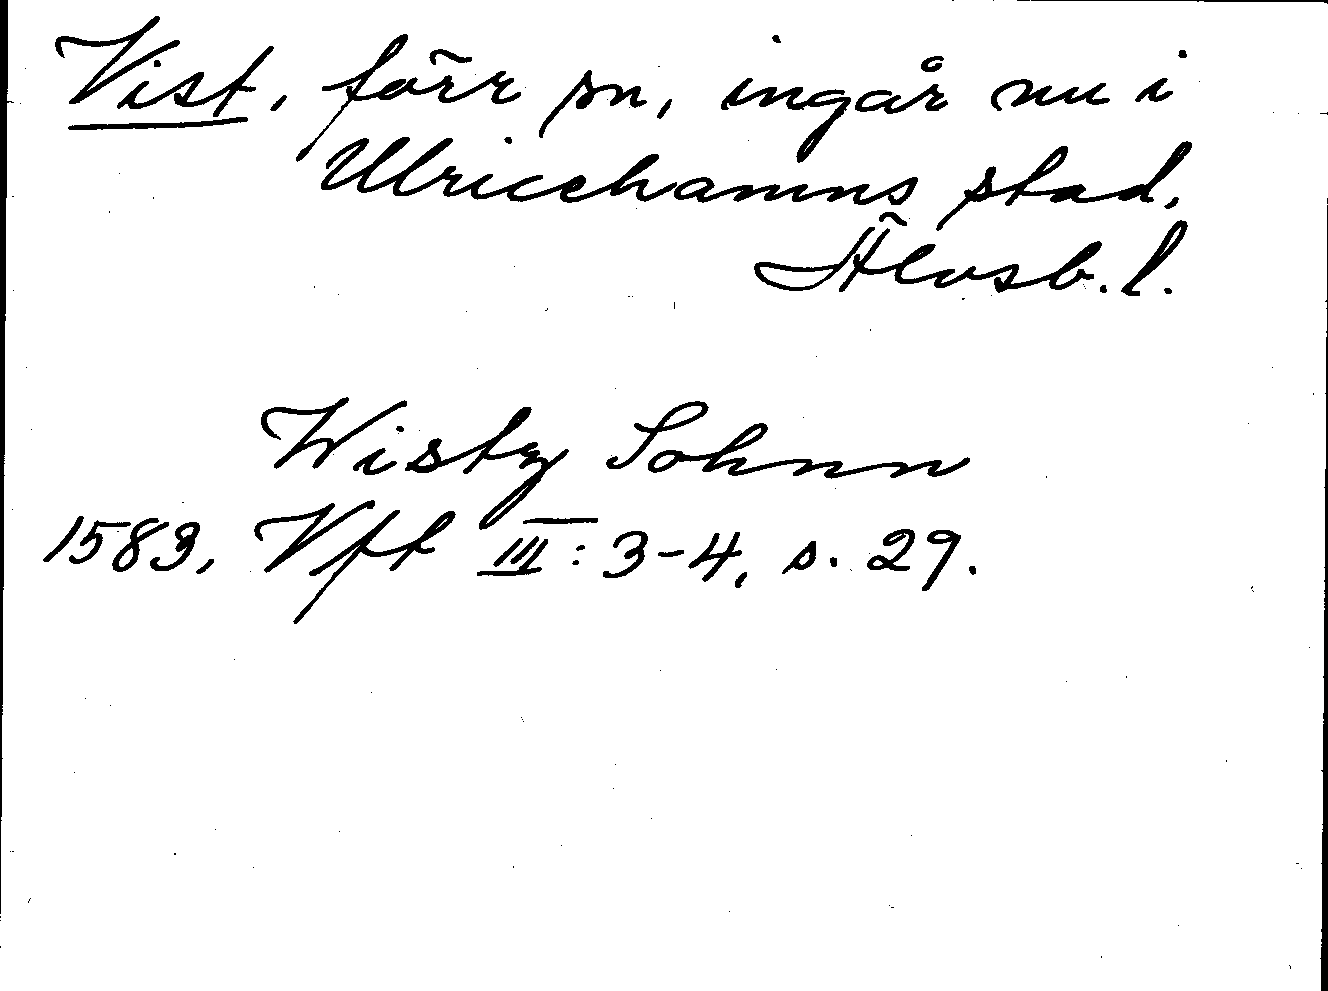 Vist, förr sn, ingår nu i
Ulricehamns stad,
Älvsb. l.
Wistz Sohnn
1583, Vft III: 3-4, s. 29.